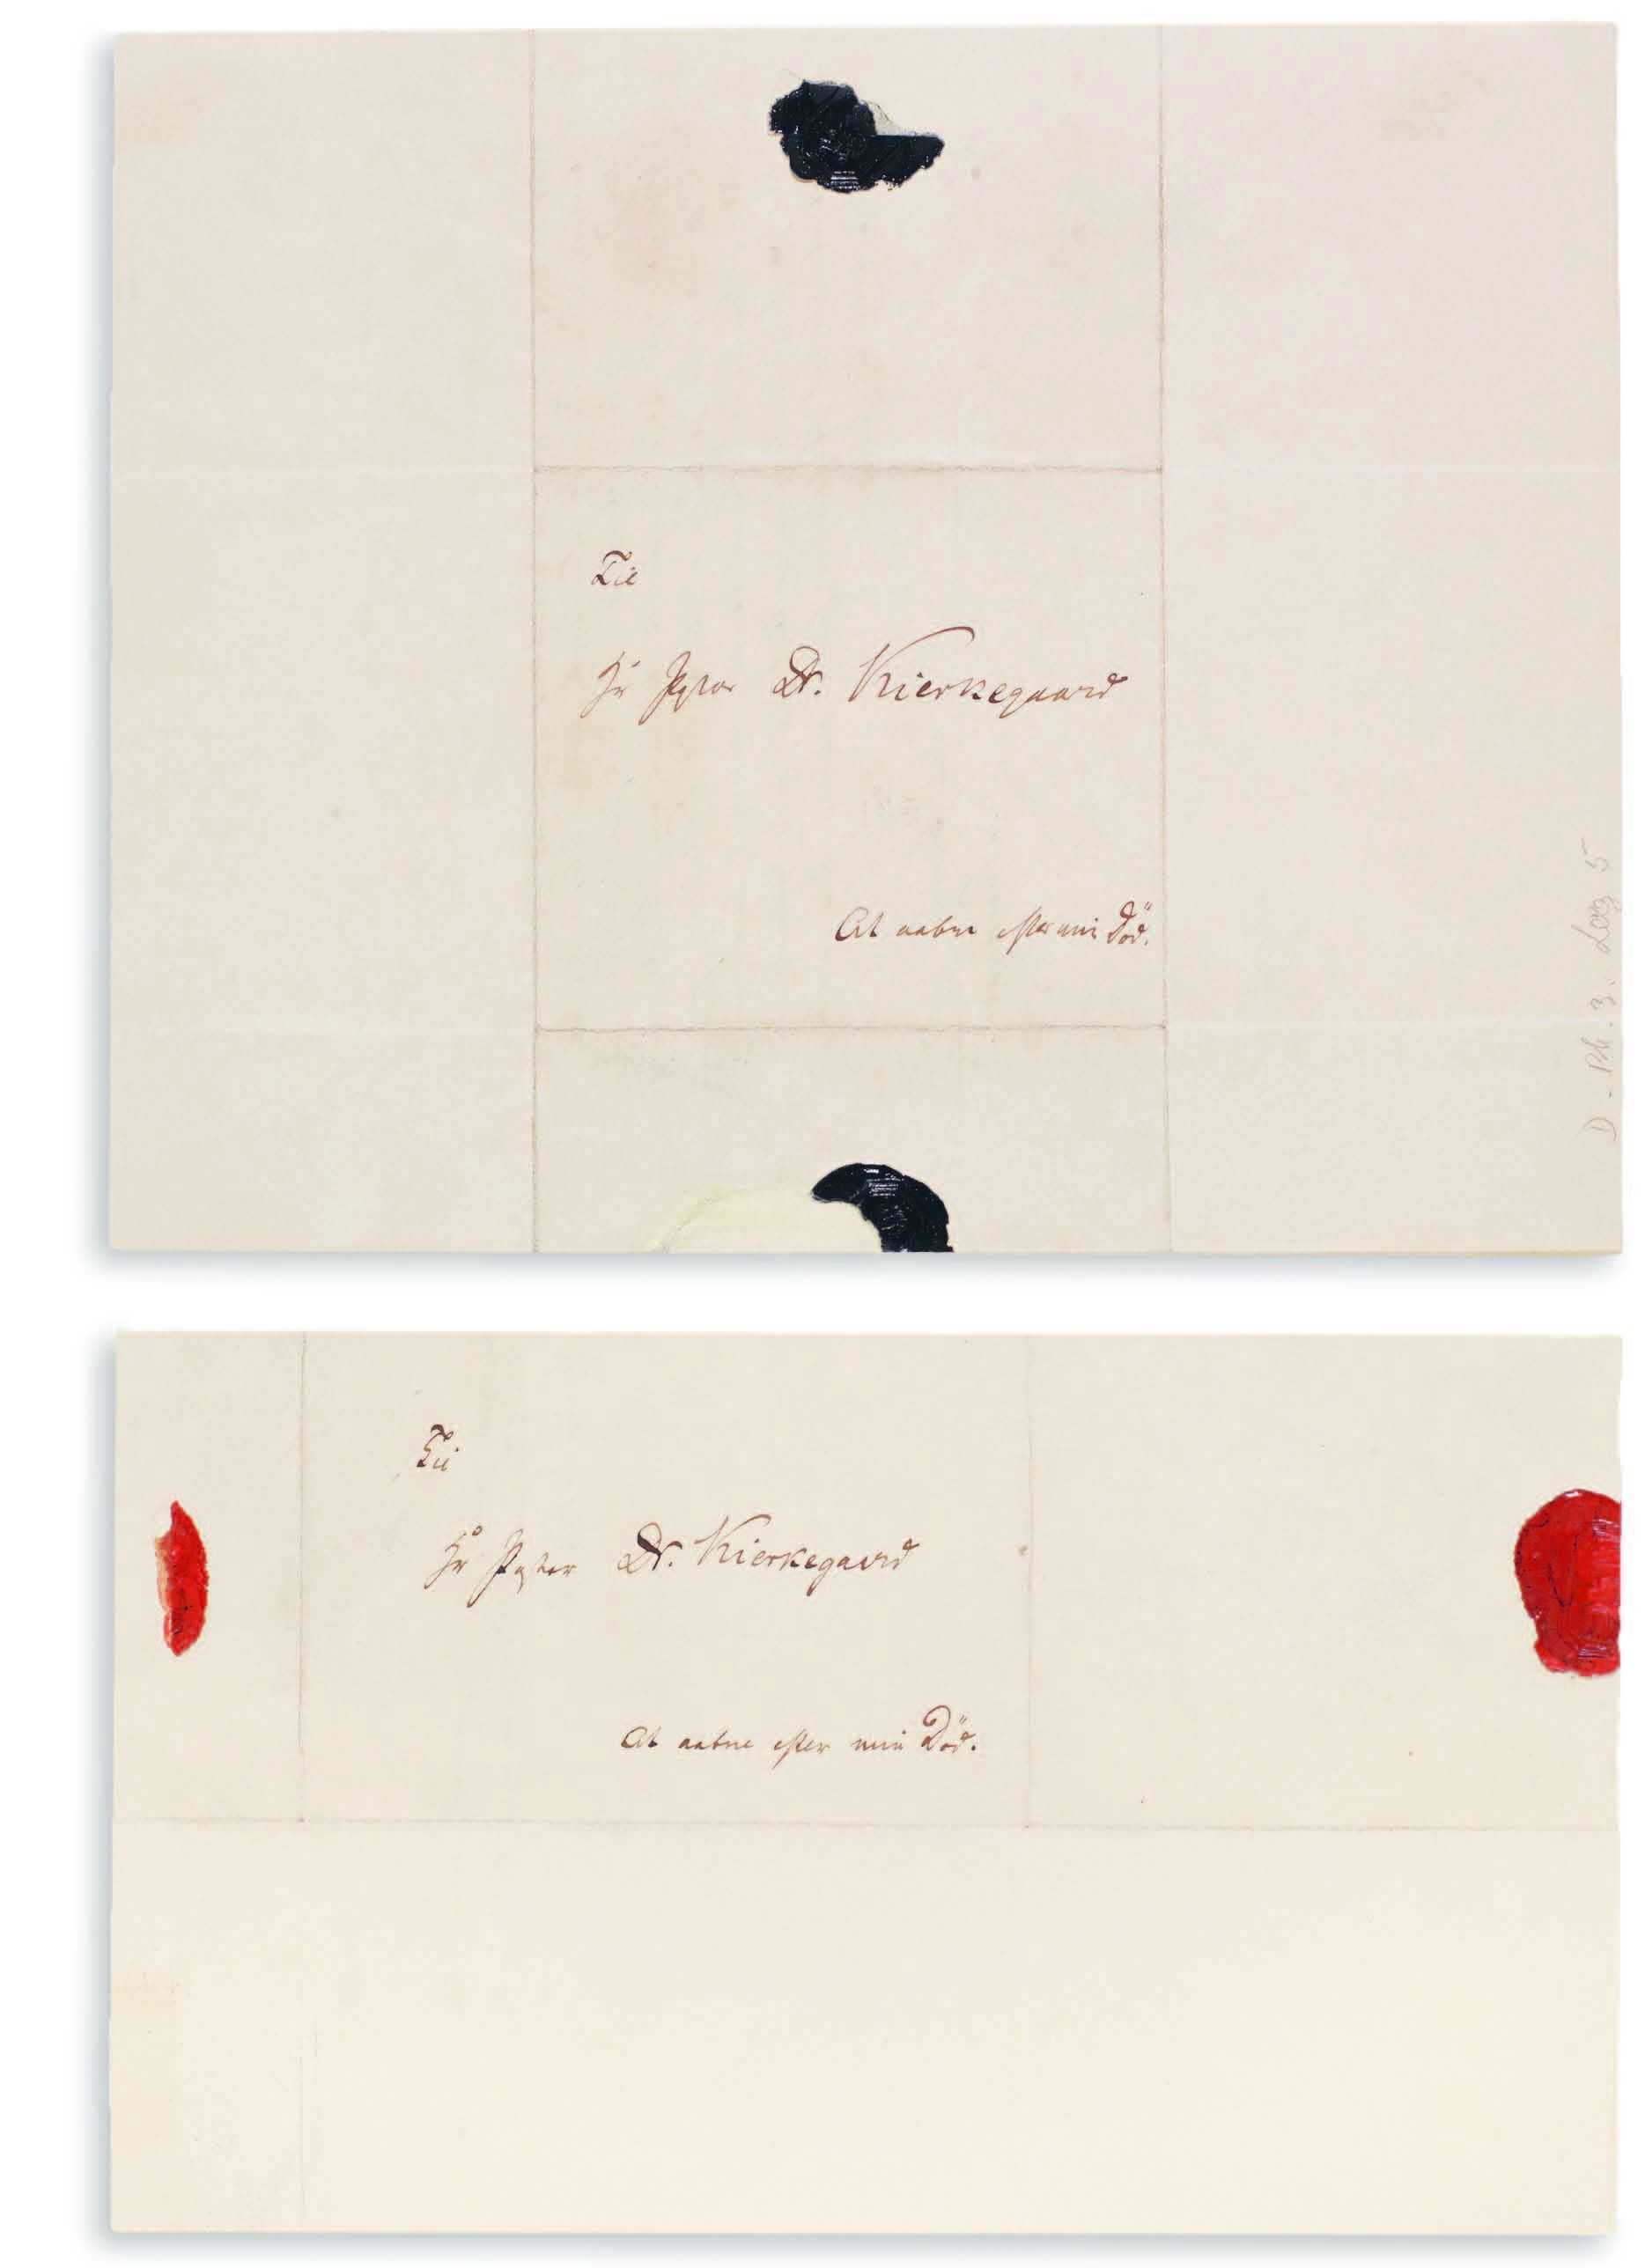 Til
Hr Pastor Dr. Kierkegaard
At aabne efter min Død.
D. Pk. 3. Læg 5
Til
Hr Pastor Dr. Kierkegaard
At aabne efter min Död.